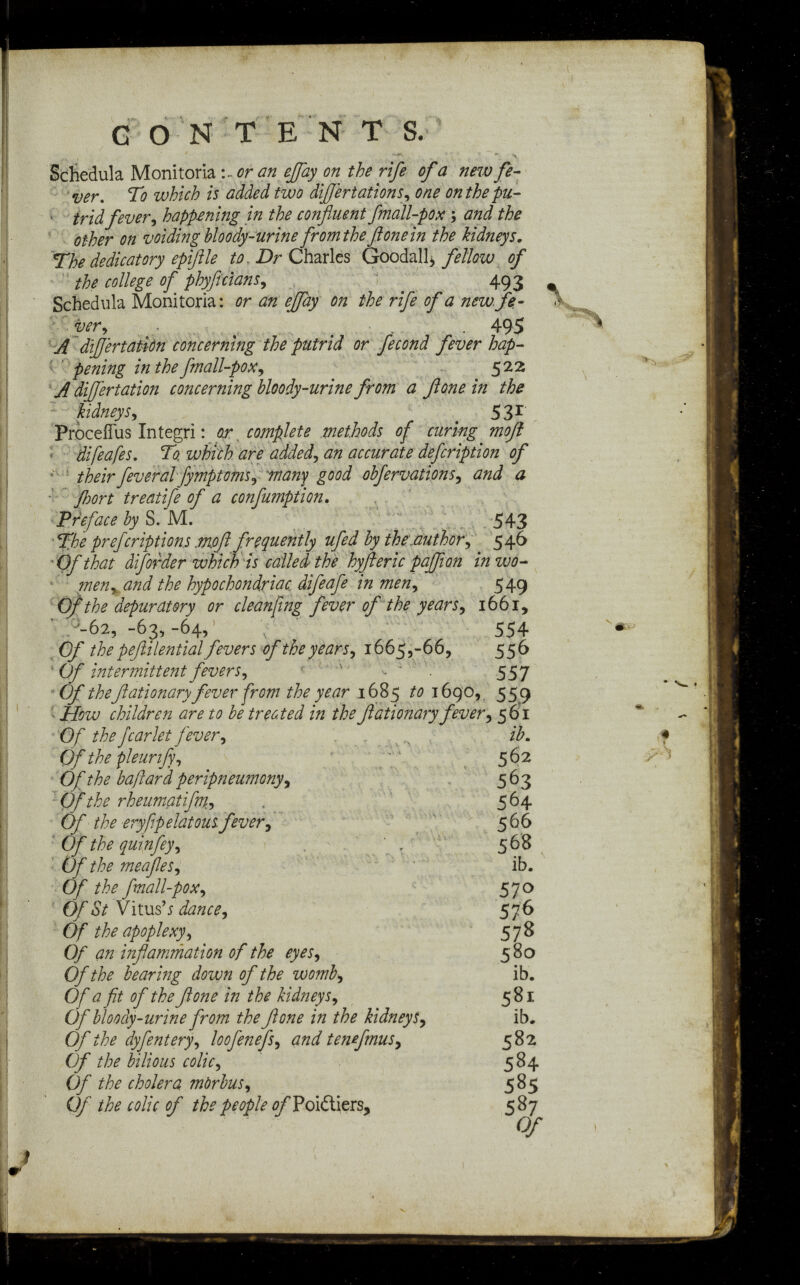 CONTENTS.
Schedula Monitoria :- or an eſſay on the riſe of a new fe-
ver. To which is added two diſſertations, one on the pu-
trid fever, happening in the confluent ſmall-pox ; and the
other on voiding bloody-urine from the ſtone in the kidneys.
The dedicatory epiſtle to Dr Charles Goodall, fellow of
the college of phyſicians, 493
Schedula Monitoria: or an eſſay on the riſe of a new fe-
ver, 495
A diſſertation concerning the putrid or ſecond fever hap-
pening in the ſmall-pox, 522
A diſſertation concerning bloody-urine from a ſtone in the
kidneys, 531
Proceſſus Integri : or complete methods of curing moſt
diſeaſes. To which are added, an accurate deſcription of
their ſeveral ſymptoms, many good obſervations, and a
ſhort treatiſe of a conſumption.
Preface by S. M. 543
The preſcriptions moſt frequently uſed by the author, 546
Of that diſorder which is called the hyſteric paſſion in wo-
men, and the hypochondriac diſeaſe in men, 549
Of the depuratory or cleanſing fever of the years, 1661,
-62, -63, -64, 554
Of the peſtilential fevers of the years, 1665,-66, 556
Of intermittent fevers, 557
Of the ſtationary fever from the year 1685 to 1690, 559
How children are to be treated in the ſtationary fever, 561
Of the ſcarlet fever, ib.
Of the pleuriſy, 562
Of the baſtard peripneumony, 563
Of the rheumatiſm, 564
Of the eryſipelatous fever, 566
Of the quinſey, 568
Of the meaſles, ib.
Of the ſmall-pox, 570
Of St Vitus's dance, 576
Of the apoplexy, 578
Of an inflammation of the eyes, 580
Of the bearing down of the womb, ib.
Of a fit of the ſtone in the kidneys, 581
Of bloody-urine from the ſtone in the kidneys, ib.
Of the dyſentery, looſeneſs, and teneſmus, 582
Of the bilious colic, 584
Of the cholera morbus, 585
Of the colic of the people of Poictiers, 587
Of